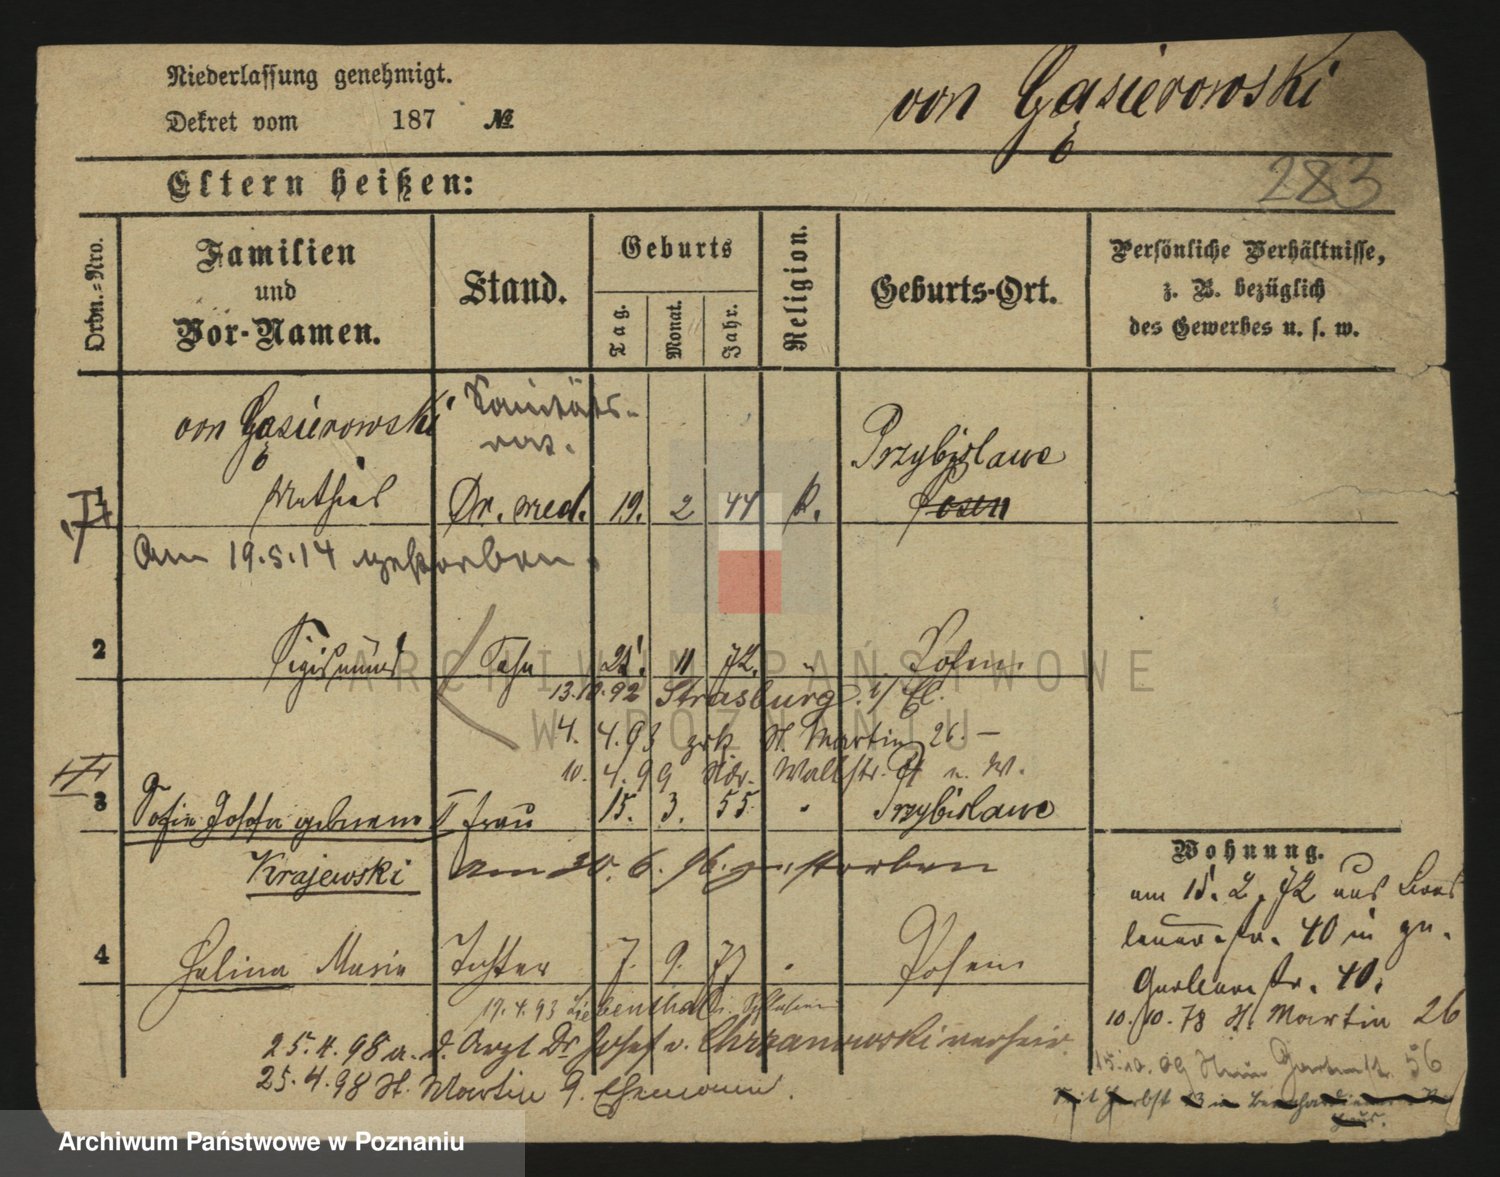 Niederlassung genehmigt.
von Gąsiorowski
Dekret vom 187 №
283
Eltern heißen:
Ordn.=Nro.
Familien und Vor-Namen.
Stand.
Geburts
Tag.
Monat.
Jahr.
Religion.
Geburts-Ort.
Persönliche Verhältnisse,
z. B. bezüglich
des Gewerbes u. s. w.
von Gąsiorowski Sanitäts-
rat.
Przybislawe
1 Mathias Dr. med. 19. 2 44 k. Posen
Am 19.5.14 gestorben.
2 Sigismund Sohn 21. 11 72. " Posen.
13.10.92 Strasburg i/ E.
4. 4.93 zrk St. Martin 26. –
10. 4.99 Ndr. Wallstr. u. W.
3 Sofie Josefa geborene Frau 15. 3. 55 " Przybislawe
Krajewski am 20. 6. 96. gestorben
4 Halina Maria Tochter 7. 9. 77 " Posen
19.4.93 Liebenthal i. Schlesien
25.4.98 a. d. Arzt Dr Josef v. Chrzanowski verheir.
25.4.98 St. Martin 9. Ehemann.
Wohnung.
am 15. 2. 72 aus Bres
lauerstr. 40 in gr.
Gerberstr. 40.
10. 10. 78 St. Martin 26
15.10.09 Gartenstr. 56
ARCHIWUM PAŃSTWOWE
W POZNANIU
Archiwum Państwowe w Poznaniu